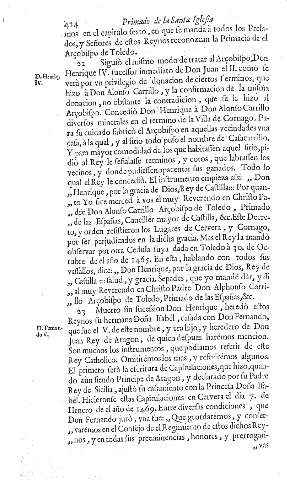 424 Primado de la Santa Iglesia
mos en el capitulo sexto, en que se manda à todos los Prela-
dos, y Señores de estos Reynos reconozcan la Primacia de el
Arçobispo de Toledo.
22 Siguiò el mismo modo de tratar al Arçobispo, Don
D. Henriq. IV.
Henrique IV. sucessor inmediato de Don Juan el II. como se
verà por vn privilegio de donacion de ciertos Terminos, que
hizo à Don Alonso Carrillo, y la confirmacion de la misma
donacion, no obstante la contradicion, que se la hizo al
Arçobispo. Concediò Don Henrique à Don Alonso Carrillo
diversos minerales en el termino de la Villa de Cornago. Pa-
ra su cuidado fabricò el Arçobispo en aquellas vecindades vna
casa, à la qual, y al sitio todo puso el nombre de Casacarrillo.
Y para mayor comodidad de los que habitassen aquel sitio, pi-
diò al Rey le señalasse terminos, y cotos, que labrassen los
vecinos, y donde pudiessen apacentar sus ganados. Todo lo
qual el Rey le concediò. El instrumento empieza assi: ,, Don
,, Henrique, por la gracia de Dios, Rey de Castilla:: Por quan-
,, to Yo fice merced à vos el muy Reverendo en Christo Pa-
,, dre Don Alonso Carrillo Arçobispo de Toledo, Primado
,, de las Españas, Canciller mayor de Castilla, &c. Este Decre-
to, y orden resistieron los Lugares de Cervera, y Cornago,
por ser perjudicados en la dicha gracia. Mas el Rey la mandò
observar por otra Cedula suya dada en Toledo à 20. de Oc-
tubre de el año de 1465. En esta, hablando con todos sus
vassallos, dice: ,, Don Henrique, por la gracia de Dios, Rey de
,, Castilla :: salud, y gracia. Sepades, que yo mandè dar, y di
,, al muy Reverendo en Christo Padre Don Alphonso Carri-
,, llo Arçobispo de Toledo, Primado de las Españas, &c.
23 Muerto sin sucession Don Henrique, heredò estos
D. Fernando V.
Reynos su hermana Doña Isabel, casada con Don Fernando,
que fue el V. de este nombre, y era hijo, y heredero de Don
Juan Rey de Aragon, de quien despues harèmos mencion.
Son muchos los instrumentos, que podiamos referir de este
Rey Catholico. Omitirèmos los mas, y referirèmos algunos.
El primero serà la escritura de Capitulaciones, que hizo, quan-
do aun siendo Principe de Aragon, y declarado por su Padre
Rey de Sicilia, ajustò su casamiento con la Princesa Doña Isa-
bel. Hicieronse estas Capitulaciones en Cervera el dia 7. de
Henero de el año de 1469. Entre diversas condiciones, que
Don Fernando jurò, vna fue: ,, Que guardarèmos, y conser-
,, varèmos en el Consejo de el Regimiento de estos dichos Rey-
,, nos, y en todas sus preeminencias, honores, y prerrogati-
,, vas